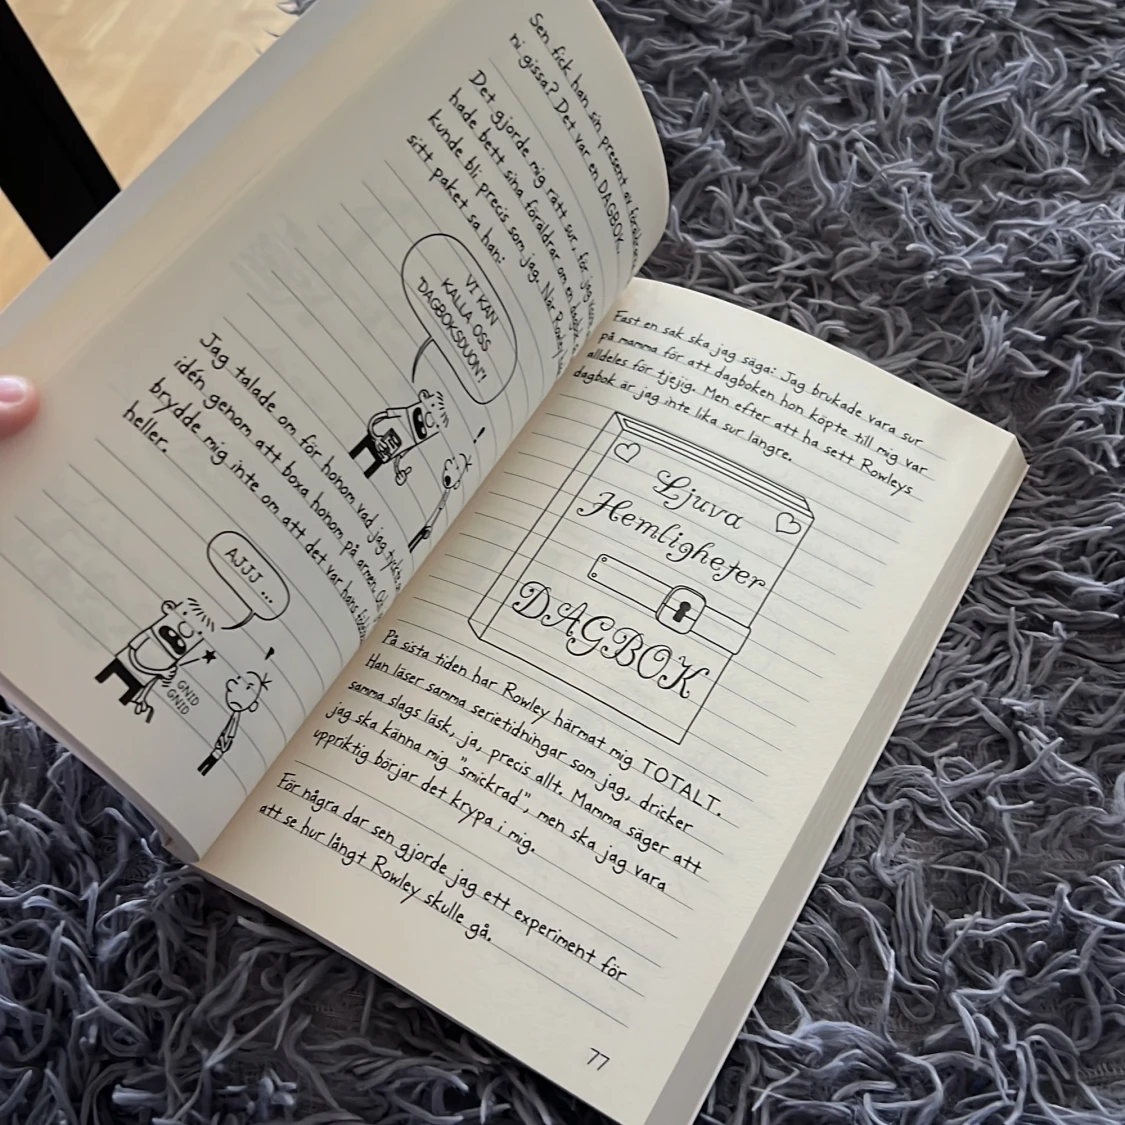 Sen fick han sin present av
ni gissa? Det var en DAGBOK.
Det gjorde mig rätt sur, för jag
hade bett sina föräldrar om en dagbok
kunde bli precis som jag. När Rowley
sitt paket sa han:
VI KAN
KALLA OSS
"DAGBOKSDUON"!
!
Jag talade om för honom vad jag tyckte
idén genom att boxa honom på armen.
brydde mig inte om att det var hans
heller.
AJJJ ...
!
GNID
GNID
Fast en sak ska jag säga: Jag brukade vara sur
på mamma för att dagboken hon köpte till mig var
alldeles för tjejig. Men efter att ha sett Rowleys
dagbok är jag inte lika sur längre.
Ljuva
Hemligheter
DAGBOK
På sista tiden har Rowley härmat mig TOTALT.
Han läser samma serietidningar som jag, dricker
samma slags läsk, ja, precis allt. Mamma säger att
jag ska känna mig "smickrad", men ska jag vara
uppriktig börjar det krypa i mig.
För några dar sen gjorde jag ett experiment för
att se hur långt Rowley skulle gå.
77